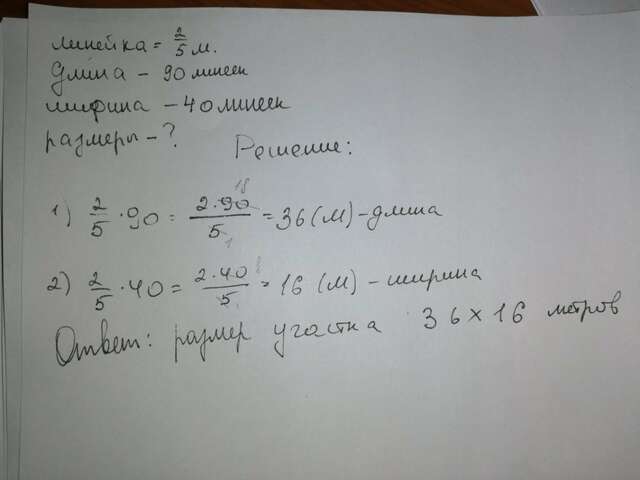 линейка = 2/5 м.
Длина – 90 линеек
ширина – 40 линеек
размеры – ?
Решение:
1) 2/5 · 90 = 2·90/5 = 36 (м) – длина
2) 2/5 · 40 = 2·40/5 = 16 (м) – ширина
Ответ: размер участка 36 × 16 метров